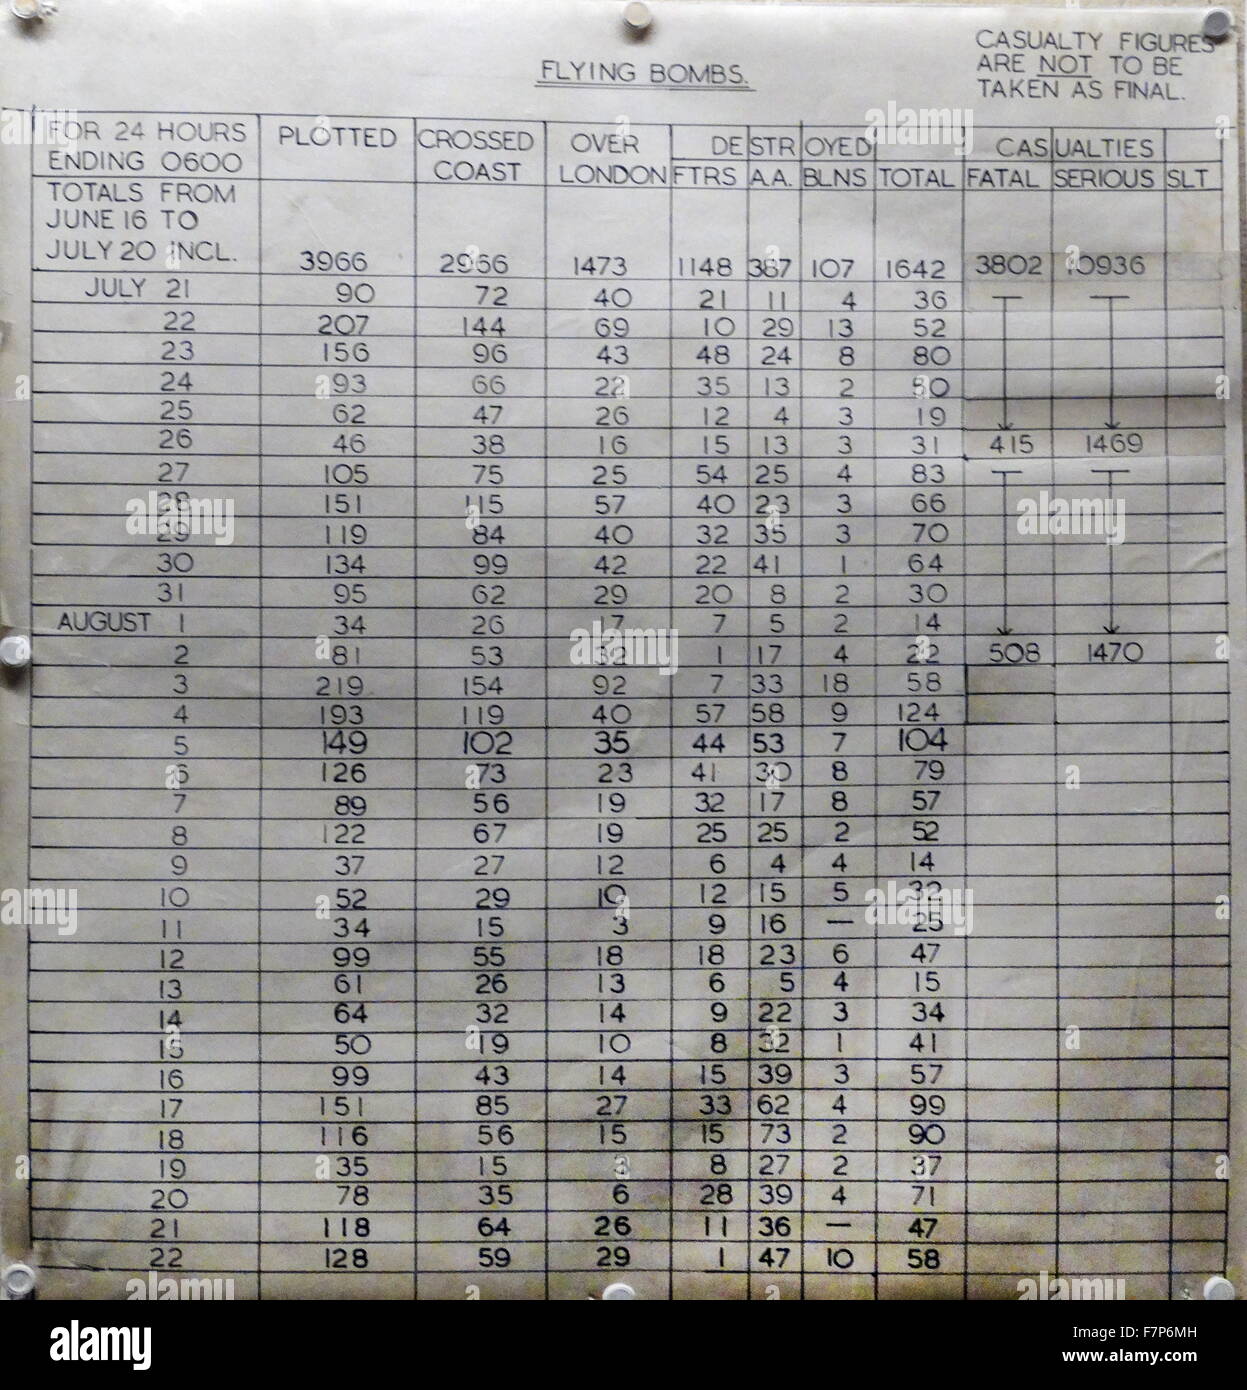 CASUALTY FIGURES
ARE NOT TO BE
TAKEN AS FINAL.
FLYING BOMBS.
FOR 24 HOURS ENDING 0600 PLOTTED CROSSED COAST OVER LONDON DESTROYED CASUALTIES
FTRS A.A. BLNS TOTAL FATAL SERIOUS SLT
TOTALS FROM
JUNE 16 TO
JULY 20 INCL. 3966 2966 1473 1148 387 107 1642 3802 10936
JULY 21 90 72 40 21 11 4 36
22 207 144 69 10 29 13 52
23 156 96 43 48 24 8 80
24 93 66 22 35 13 2 50
25 62 47 26 12 4 3 19
26 46 38 16 15 13 3 31 415 1469
27 105 75 25 54 25 4 83
28 151 115 57 40 23 3 66
29 119 84 40 32 35 3 70
30 134 99 42 22 41 1 64
31 95 62 29 20 8 2 30
AUGUST 1 34 26 17 7 5 2 14
2 81 53 32 1 17 4 22 508 1470
3 219 154 92 7 33 18 58
4 193 119 40 57 58 9 124
5 149 102 35 44 53 7 104
6 126 73 23 41 30 8 79
7 89 56 19 32 17 8 57
8 122 67 19 25 25 2 52
9 37 27 12 6 4 4 14
10 52 29 10 12 15 5 32
11 34 15 3 9 16 — 25
12 99 55 18 18 23 6 47
13 61 26 13 6 5 4 15
14 64 32 14 9 22 3 34
15 50 19 10 8 32 1 41
16 99 43 14 15 39 3 57
17 151 85 27 33 62 4 99
18 116 56 15 15 73 2 90
19 35 15 3 8 27 2 37
20 78 35 6 28 39 4 71
21 118 64 26 11 36 — 47
22 128 59 29 1 47 10 58
alamy
alamy stock photo
F7P6MH
www.alamy.com